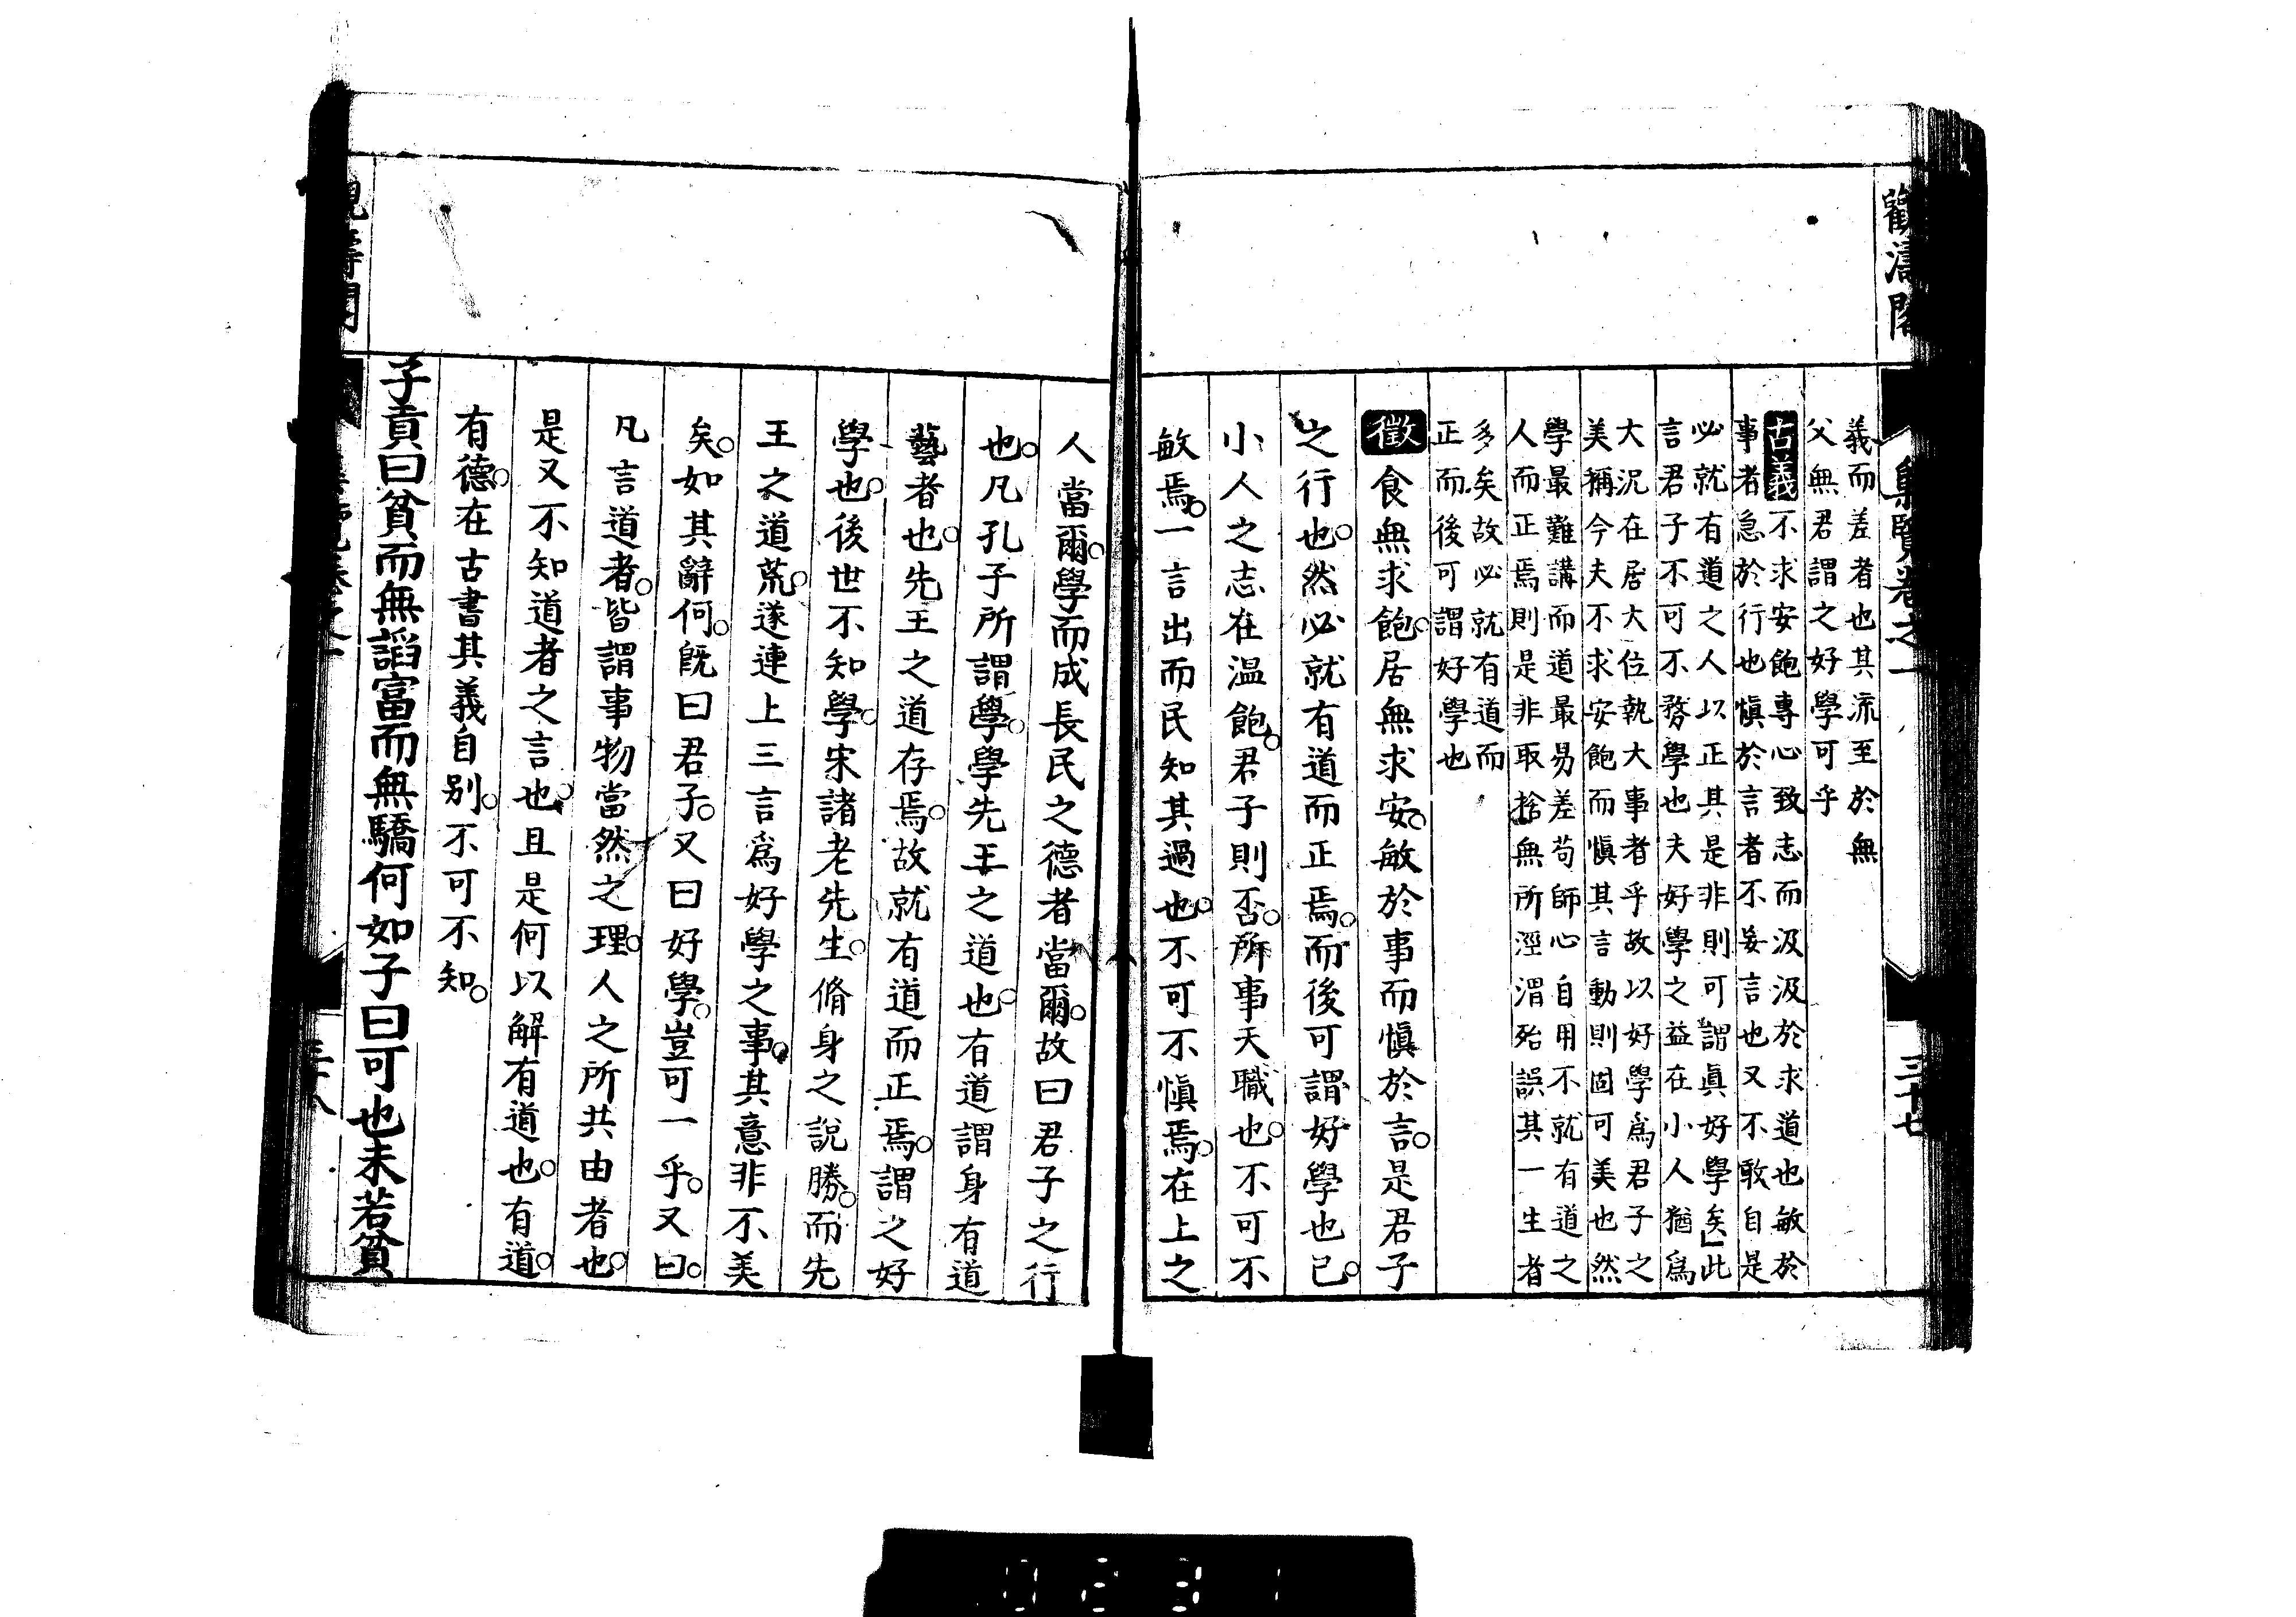 觀濤閣
集覽卷之一
三十七
義而差者也其流至於無
父無君謂之好學可乎
古義不求安飽專心致志而汲汲於求道也敏於
事者急於行也愼於言者不妄言也又不敢自是
必就有道之人以正其是非則可謂眞好學矣」此
言君子不可不務學也夫好學之益在小人猶爲
大況在居大位執大事者乎故以好學爲君子之
美稱今夫不求安飽而愼其言動則固可美也然
學最難講而道最易差苟師心自用不就有道之
人而正焉則是非取捨無所涇渭殆誤其一生者
多矣故必就有道而
正而後可謂好學也
徵食無求飽居無求安敏於事而愼於言是君子
之行也然必就有道而正焉而後可謂好學也已
小人之志在温飽君子則否所事天職也不可不
敏焉一言出而民知其過也不可不愼焉在上之
人當爾學而成長民之德者當爾故曰君子之行
也凡孔子所謂學學先王之道也有道謂身有道
藝者也先王之道存焉故就有道而正焉謂之好
學也後世不知學宋諸老先生脩身之說勝而先
王之道荒遂連上三言爲好學之事其意非不美
矣如其辭何旣曰君子又曰好學豈可一乎又曰
凡言道者皆謂事物當然之理人之所共由者也
是又不知道者之言也且是何以解有道也有道
有德在古書其義自别不可不知
子貢曰貧而無諂富而無驕何如子曰可也未若貧
0231